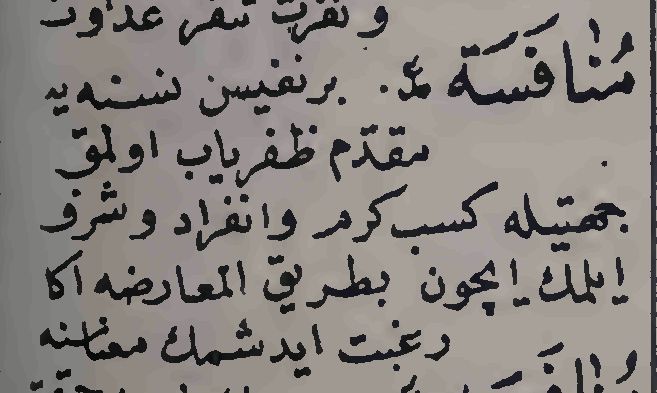 و نفرت تنفر عداوت
مُنَافَسَة بر نفيس نسنه يه
متقدّم ظفرياب اولمق
جهتيله كسب كرم وانفراد و شرف
ايلمك ايچون بطريق المعارضه اكا
رغبت ايدشمك معناسنه